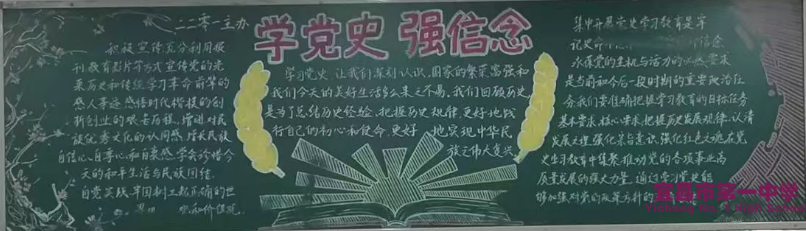 二二零一主办
学党史 强信念
积极宣传充分利用报
刊教育影片等方式宣传党的光
来历史和传统学习革命前辈的
感人事迹感悟时代楷模的创
新创业的艰苦历程,增进对民
族优秀文化的认同感,增长民族
自信心自尊心和自豪感,学会珍惜今
天的和平生活与民族团结.
自觉实践,牢固树立起正确的世
学习党史,让我们深刻认识,国家的繁荣富强和
我们今天的美好生活多么来之不易,我们回顾历史
是为了总结历史经验,把握历史规律,更好地践
行自己的初心和使命,更好地实现中华民
族之伟大复兴
集中开展党史学习教育是牢
记史命
信念
永葆党的生机与活力的必然要求
是当前和今后一段时期的重要政治任
务我们要准确把握学习教育的目标任务
基本要求,核心要求,把握历史发展规律,认清
发展大理,强化宗旨意识,强化红色文砚在党
史学习教育中凝聚推动党的各项事业高
质量发展的强大力量,通过学党史能
够加强对党的政策方针的
宜昌市第一中学